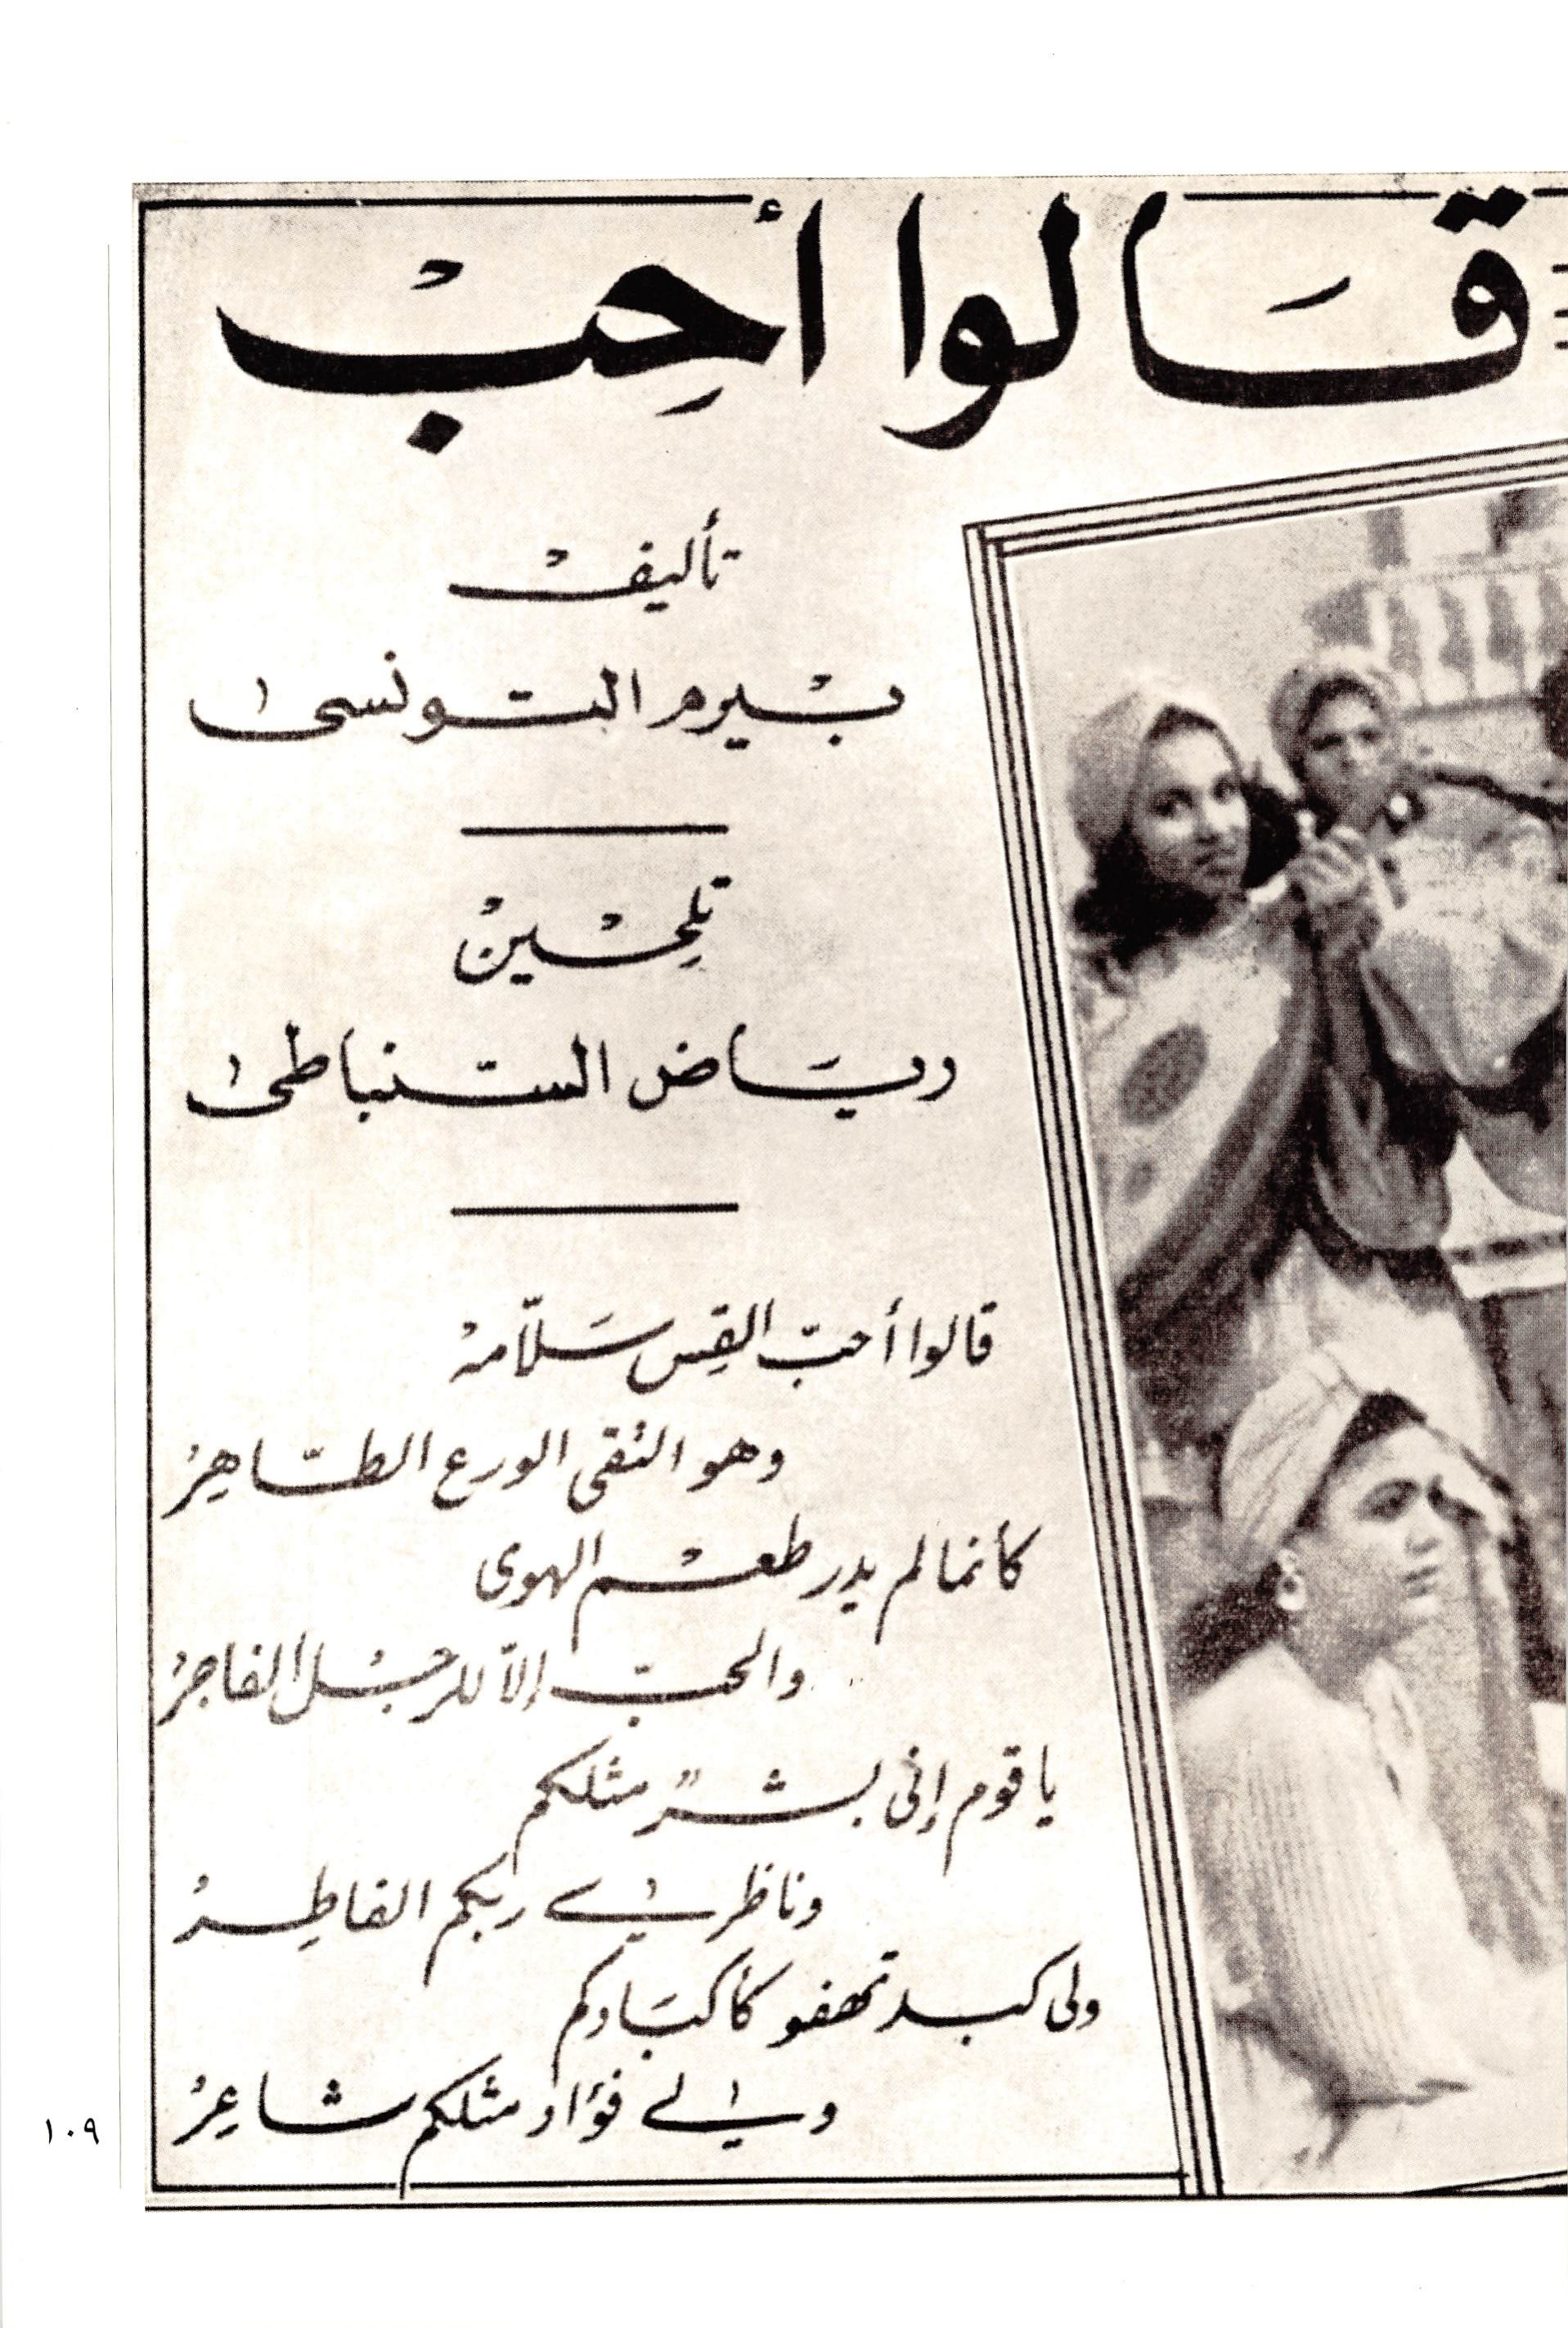 قَالوا أحِبْ
تأليفْ
بيرم التونسى
تلحِينْ
رياض السنباطى
قالوا أحبّ القِس سَلاّمهْ
وهو التقى الورع الطّاهِرْ
كأنما لم يدر طعم الهوى
والحبّ إلاّ للرجل الفاجرْ
يا قوم إنى بشرٌ مثلكم
وفاطرى ربكم الفاطِرْ
ولى كبد تهفو كأكبَادكم
ولى فؤاد مثلكم شاعِرْ
١٠٩